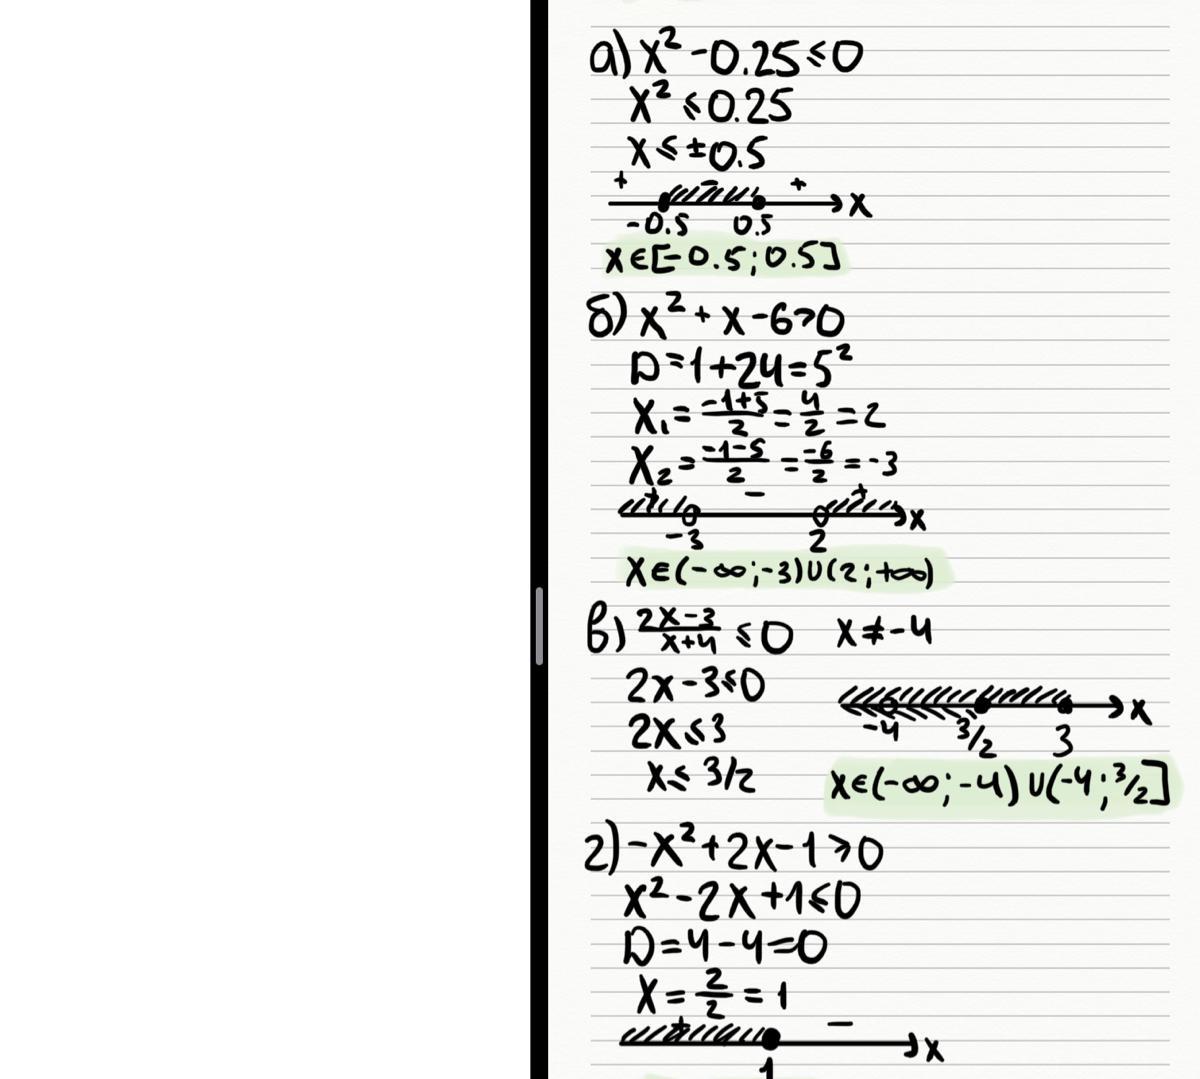 а) x² - 0.25 ≤ 0
x² ≤ 0.25
x ≤ ±0.5
+ - + x
-0.5 0.5
x∈[-0.5; 0.5]
б) x² + x - 6 > 0
D = 1 + 24 = 5²
x₁ = (-1+5)/2 = 4/2 = 2
x₂ = (-1-5)/2 = -6/2 = -3
+ - + x
-3 2
x∈(-∞; -3)∪(2; +∞)
в) (2x-3)/(x+4) ≤ 0 x ≠ -4
2x - 3 ≤ 0
2x ≤ 3
x ≤ 3/2
x
-4 3/2 3
x∈(-∞; -4)∪(-4; 3/2]
г) -x² + 2x - 1 ≥ 0
x² - 2x + 1 ≤ 0
D = 4 - 4 = 0
x = 2/2 = 1
+ - x
1